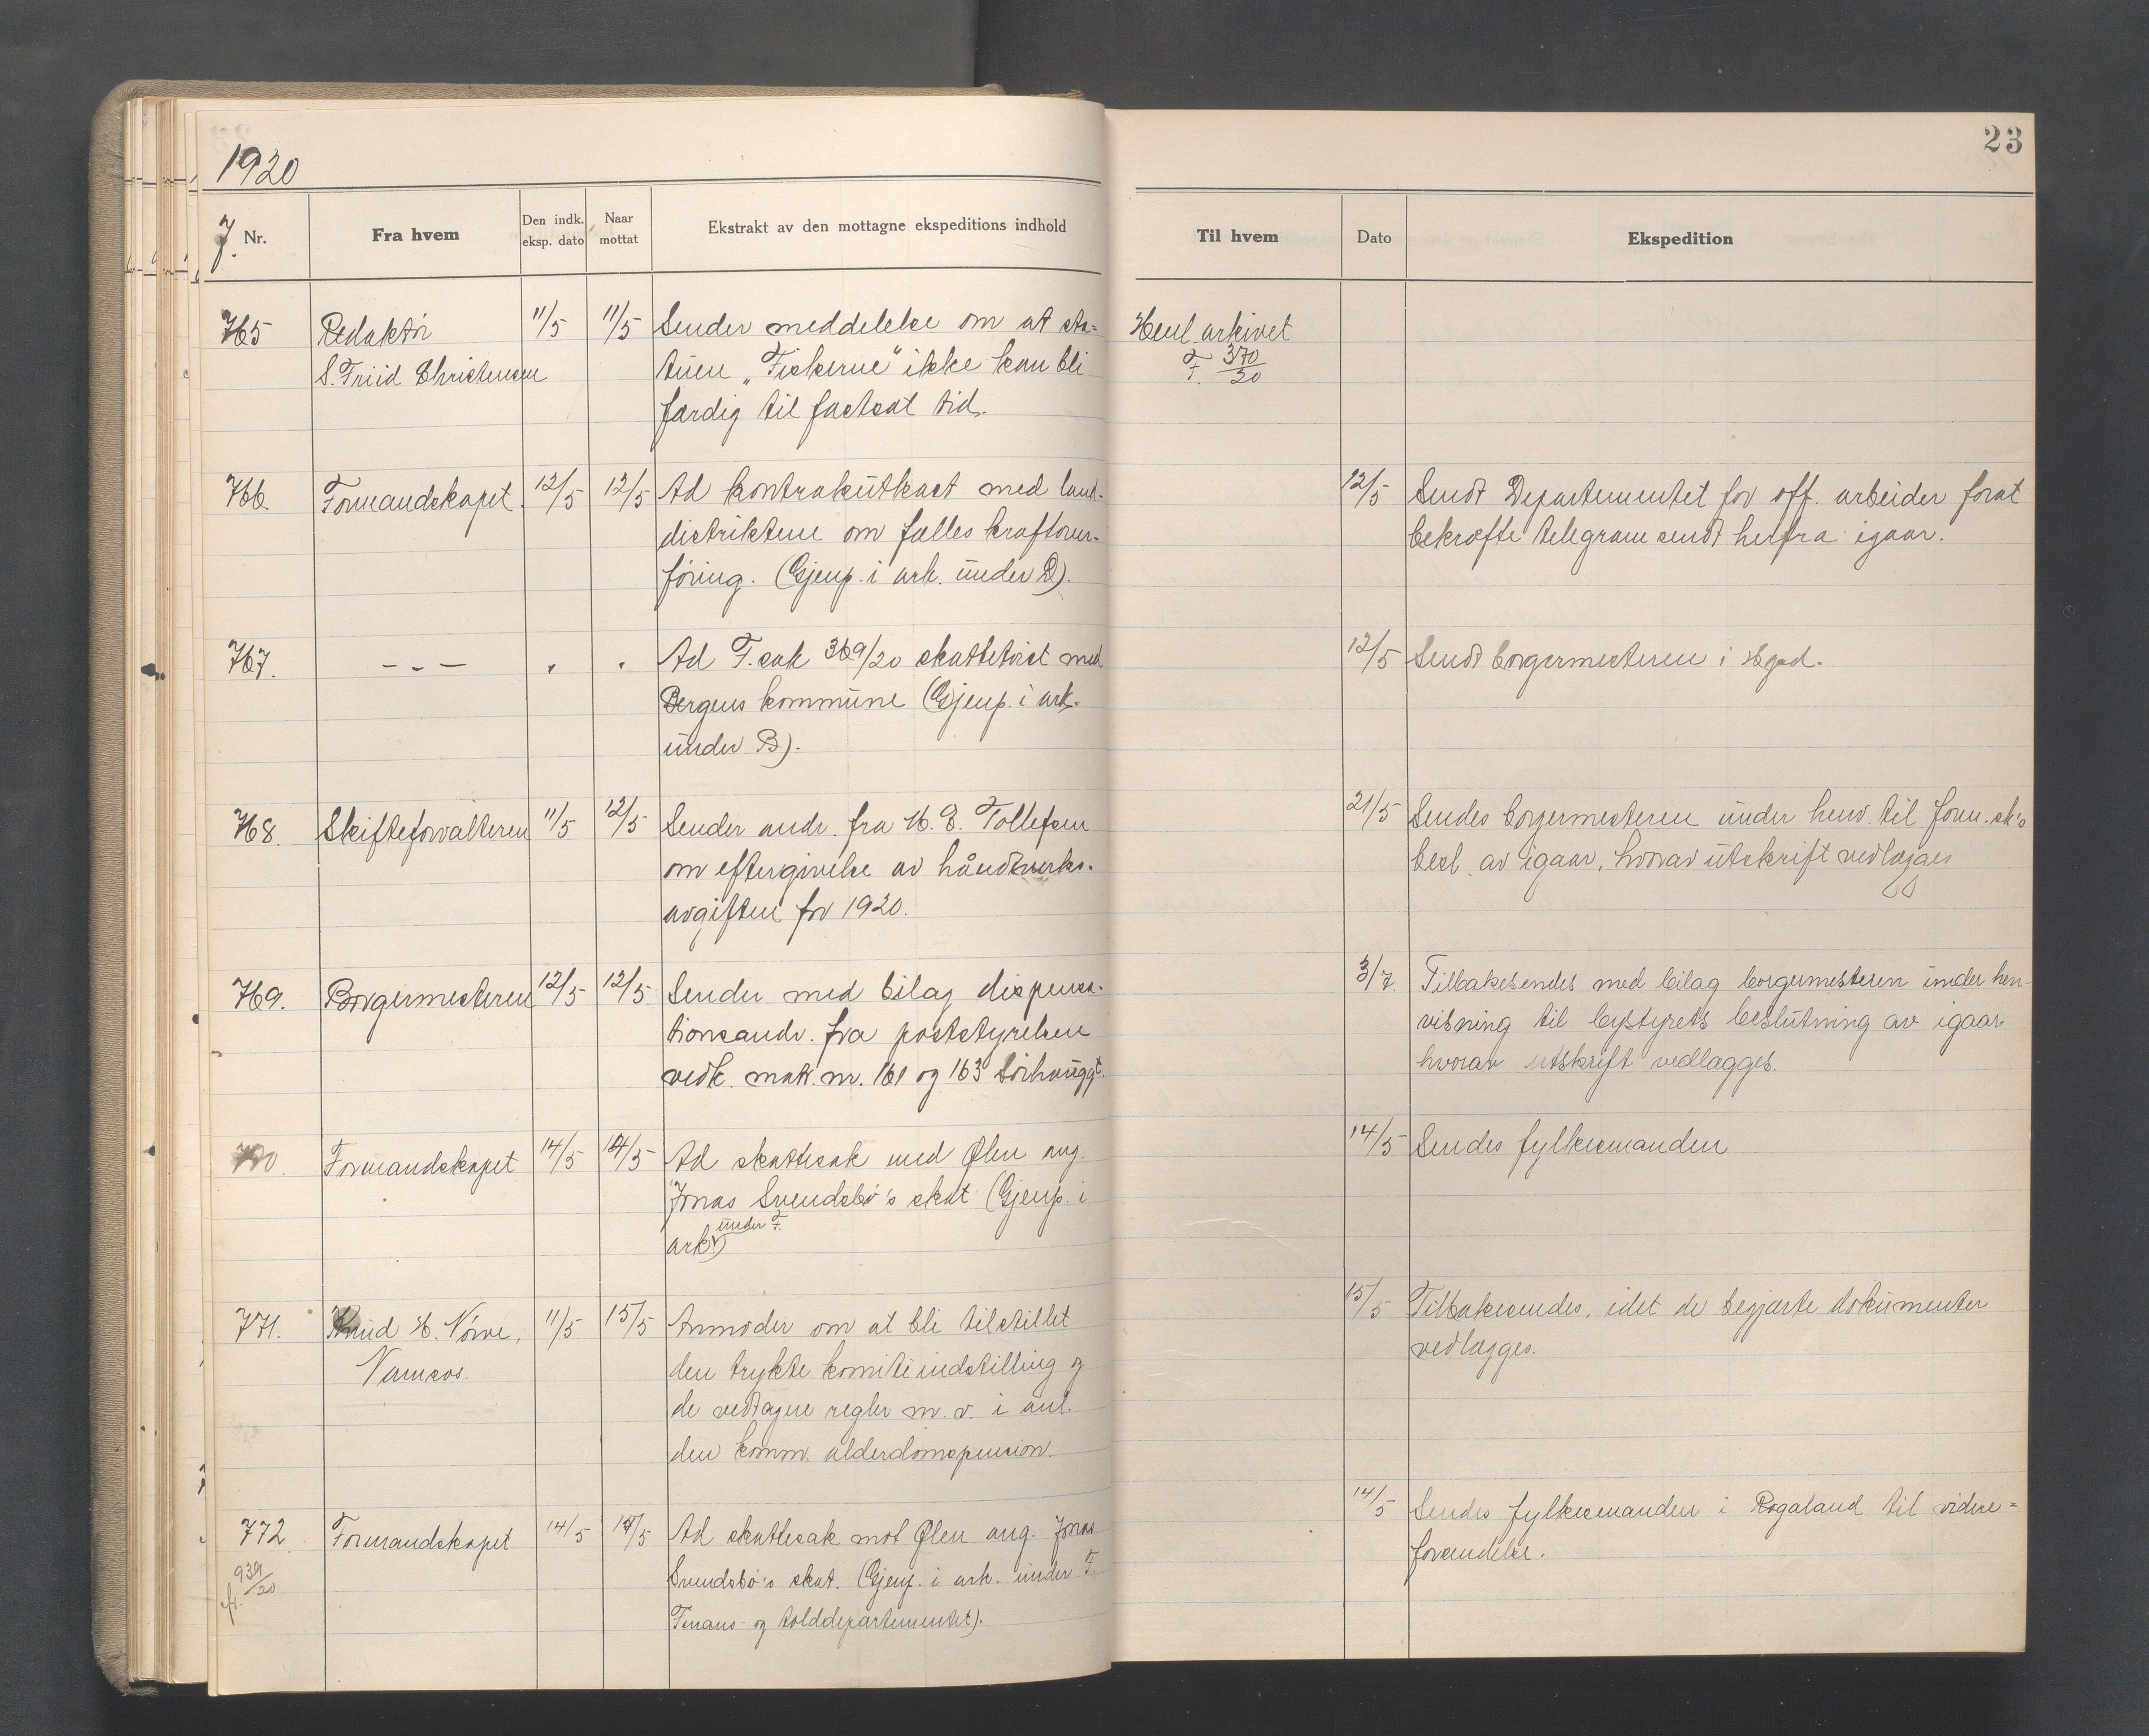 1920
23
J. Nr.
Fra hvem
Den indk. eksp. dato
Naar mottat
Ekstrakt av den mottagne ekspeditions indhold
Til hvem
Dato
Ekspedition
765
Redaktør
S. Friid Christensen
11/5
11/5
Sender meddelelse om at sta=
tuen „Fiskerne" ikke kan bli
færdig til fastsat tid.
Henl. arkivet
F. 370/20
766
Formandskapet.
12/5
12/5
Ad kontraktutkast med land-
distriktene om fælles kraftover-
føring. (Gjenp. i ark. under D).
12/5
Sendt Departementet for off. arbeider forat
bekræfte telegram sendt herfra igaar.
767.
— - —
Ad F. sak 369/20 skattetvist med
Bergens kommune (Gjenp. i ark.
under B).
12/5
Sendt borgermesteren i Hgsd.
768.
Skifteforvalteren
11/5
12/5
Sender andr. fra M. E. Tollefsen
om eftergivelse av håndverks-
avgiften for 1920.
21/5
Sendes borgermesteren under henv. til form.sk's
besl. av igaar, hvorav utskrift vedlægges
769.
Borgermesteren
12/5
12/5
Sender med bilag dispensa-
tionsandr. fra poststyrelsen
vedk. matr. nr. 161 og 163 Sørhauggt.
3/7.
Tilbakesendes med bilag borgermesteren under hen-
visning til bystyrets beslutning av igaar
hvorav utskrift vedlægges.
770.
Formandskapet
14/5
14/5
Ad skattesak med Ølen ang.
Jonas Svendsbø's skat (Gjenp. i
ark. under F.)
14/5
Sendes fylkesmanden
771.
Knud H. Nørve,
Namsos.
11/5
15/5
Anmoder om at bli tilstillet
den trykte komiteindstilling og
de vedtagne regler m. v. i anl.
den komm. alderdomspension.
15/5
Tilbakesendes, idet de begjærte dokumenter
vedlægges.
772
939/20
Formandskapet
14/5
14/5
Ad skattesak mot Ølen ang. Jonas
Svendsbø's skat. (Gjenp. i ark. under F.
Finans- og tolddepartementet).
14/5
Sendes fylkesmanden i Rogaland til videre=
forsendelse.